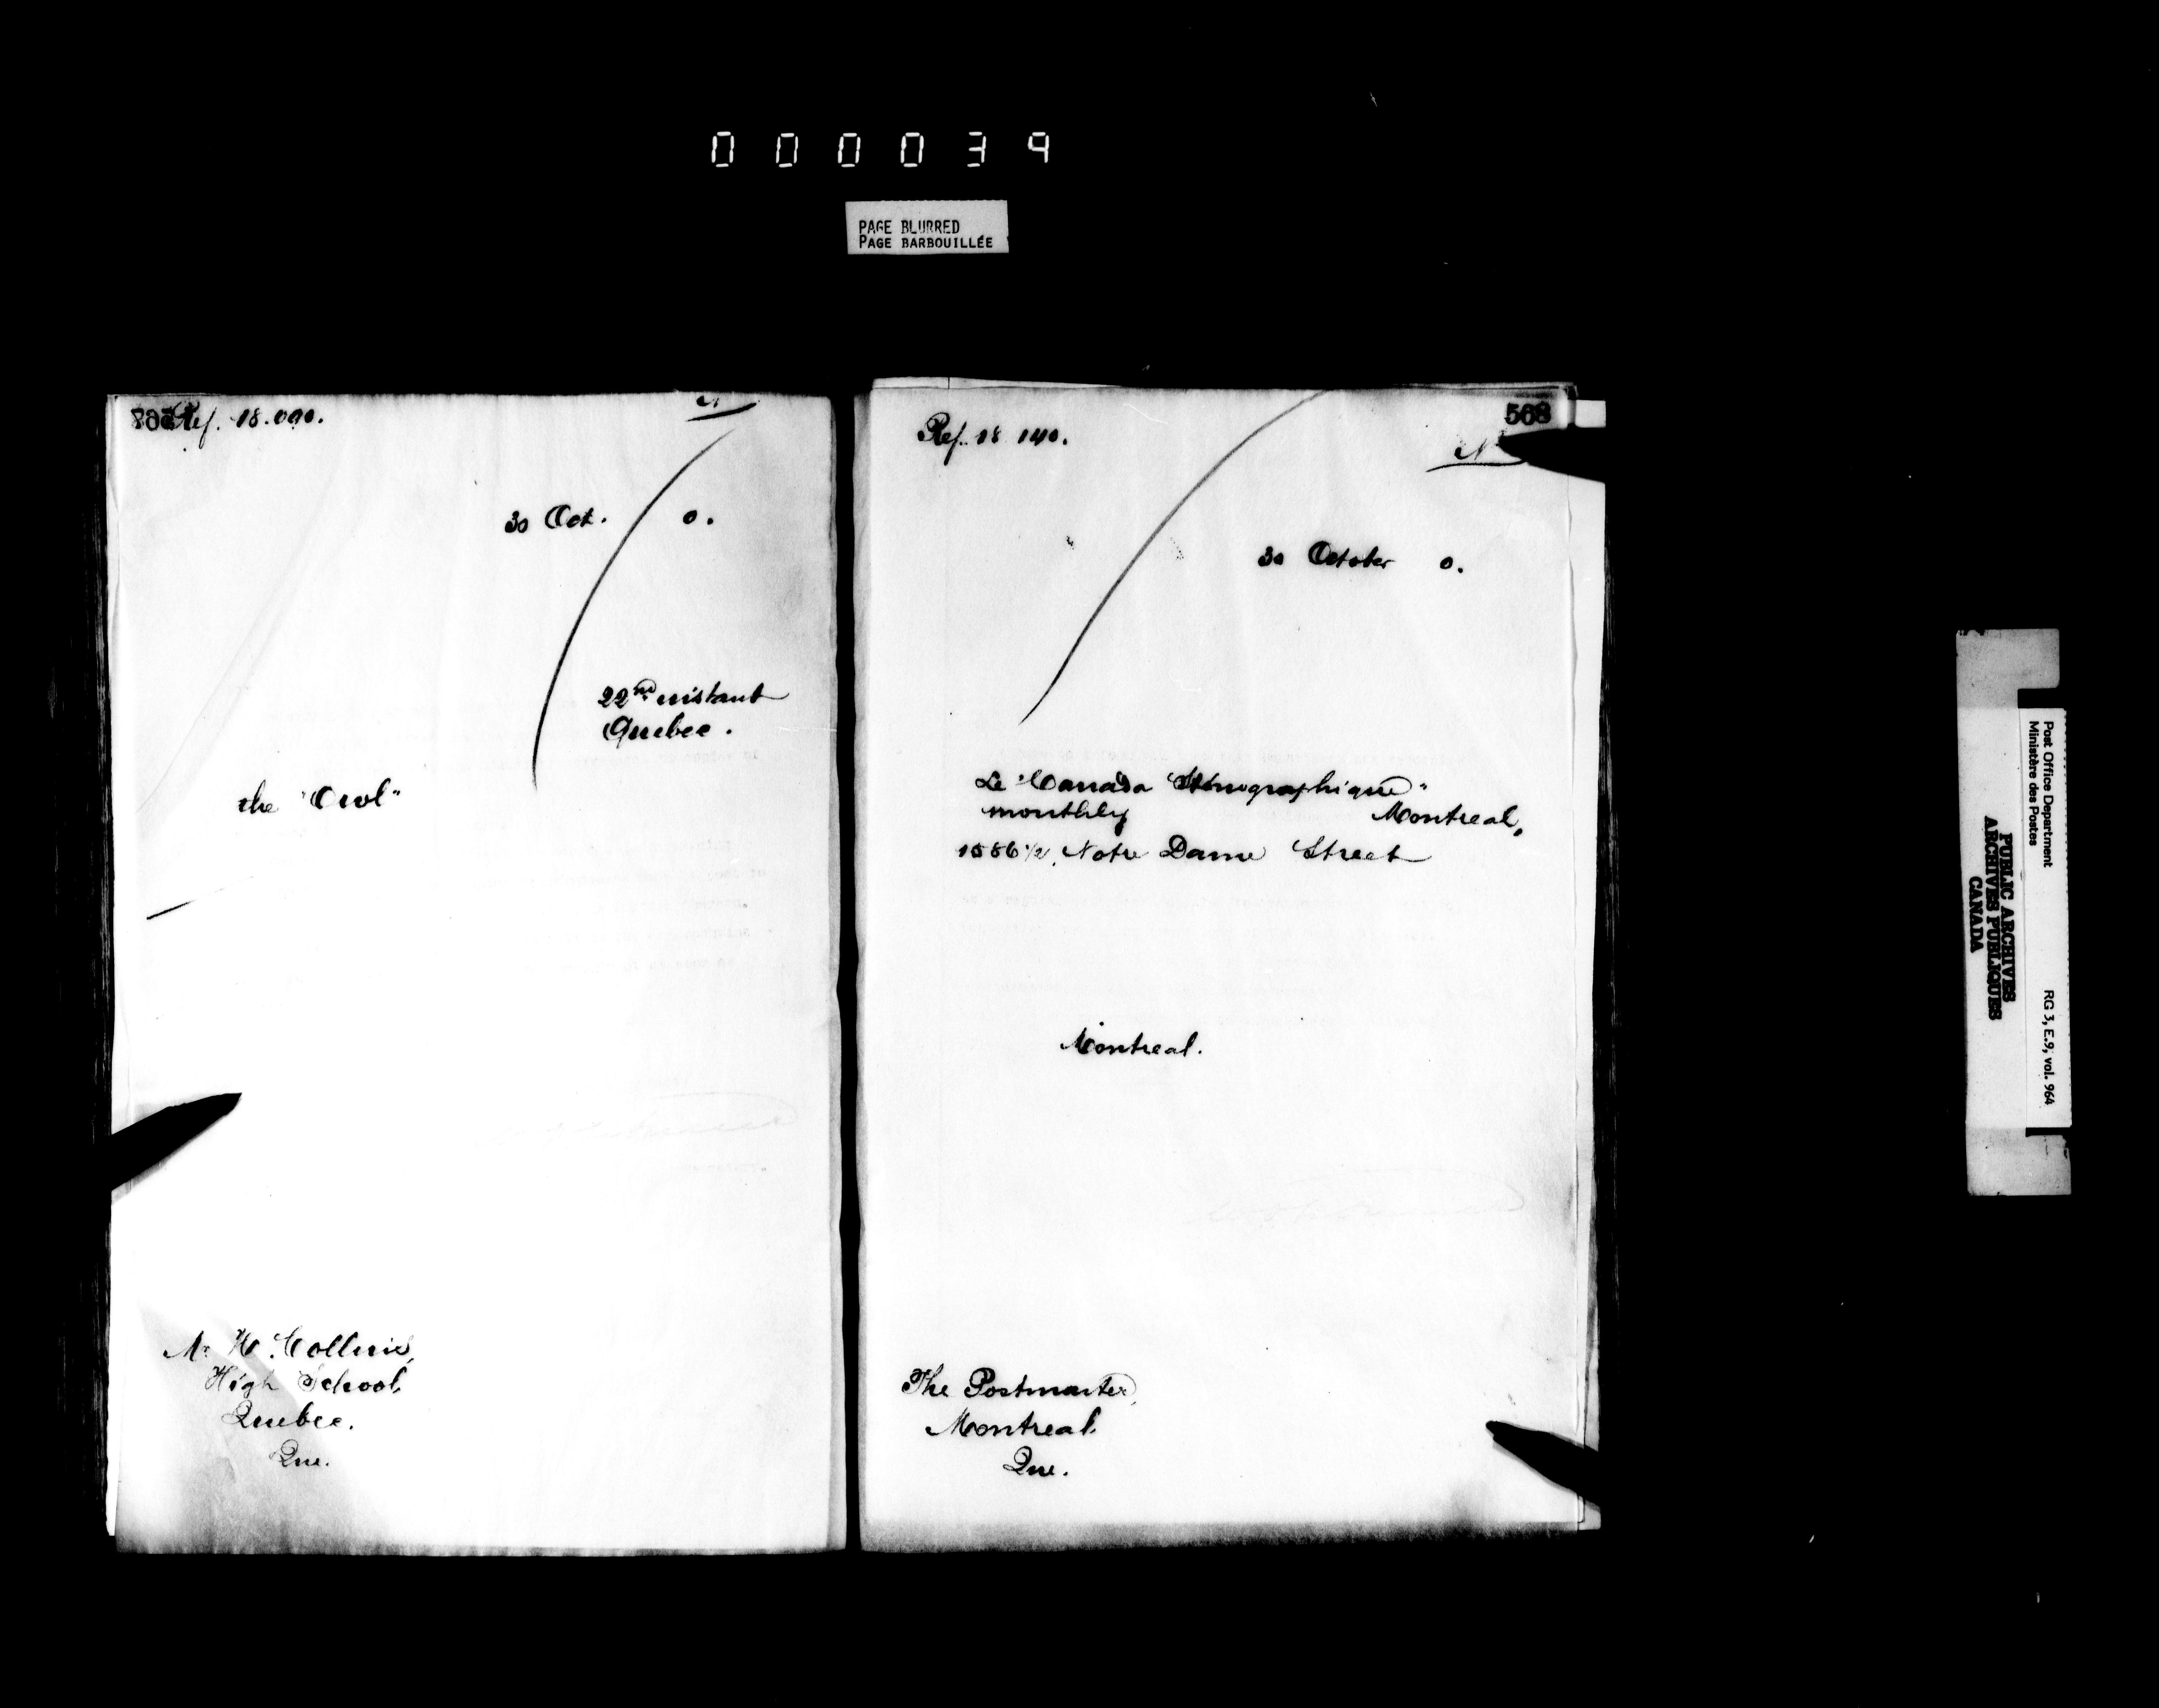 000039
PAGE BLURRED
PAGE BARBOUILLÉE
Ref. 18.090.
30 Oct. 0.
22nd instant
Quebec.
the "Owl"
Mr H. Collins,
High School,
Quebec.
Que.
568
Ref. 18 140.
30 October 0.
Le "Canada Sténographique"
monthly Montreal,
1586 1/2, Notre Dame Street
Montreal.
The Postmaster,
Montreal,
Que.
Post Office Department
Ministère des Postes
RG 3, E.9, vol. 964
PUBLIC ARCHIVES
ARCHIVES PUBLIQUES
CANADA